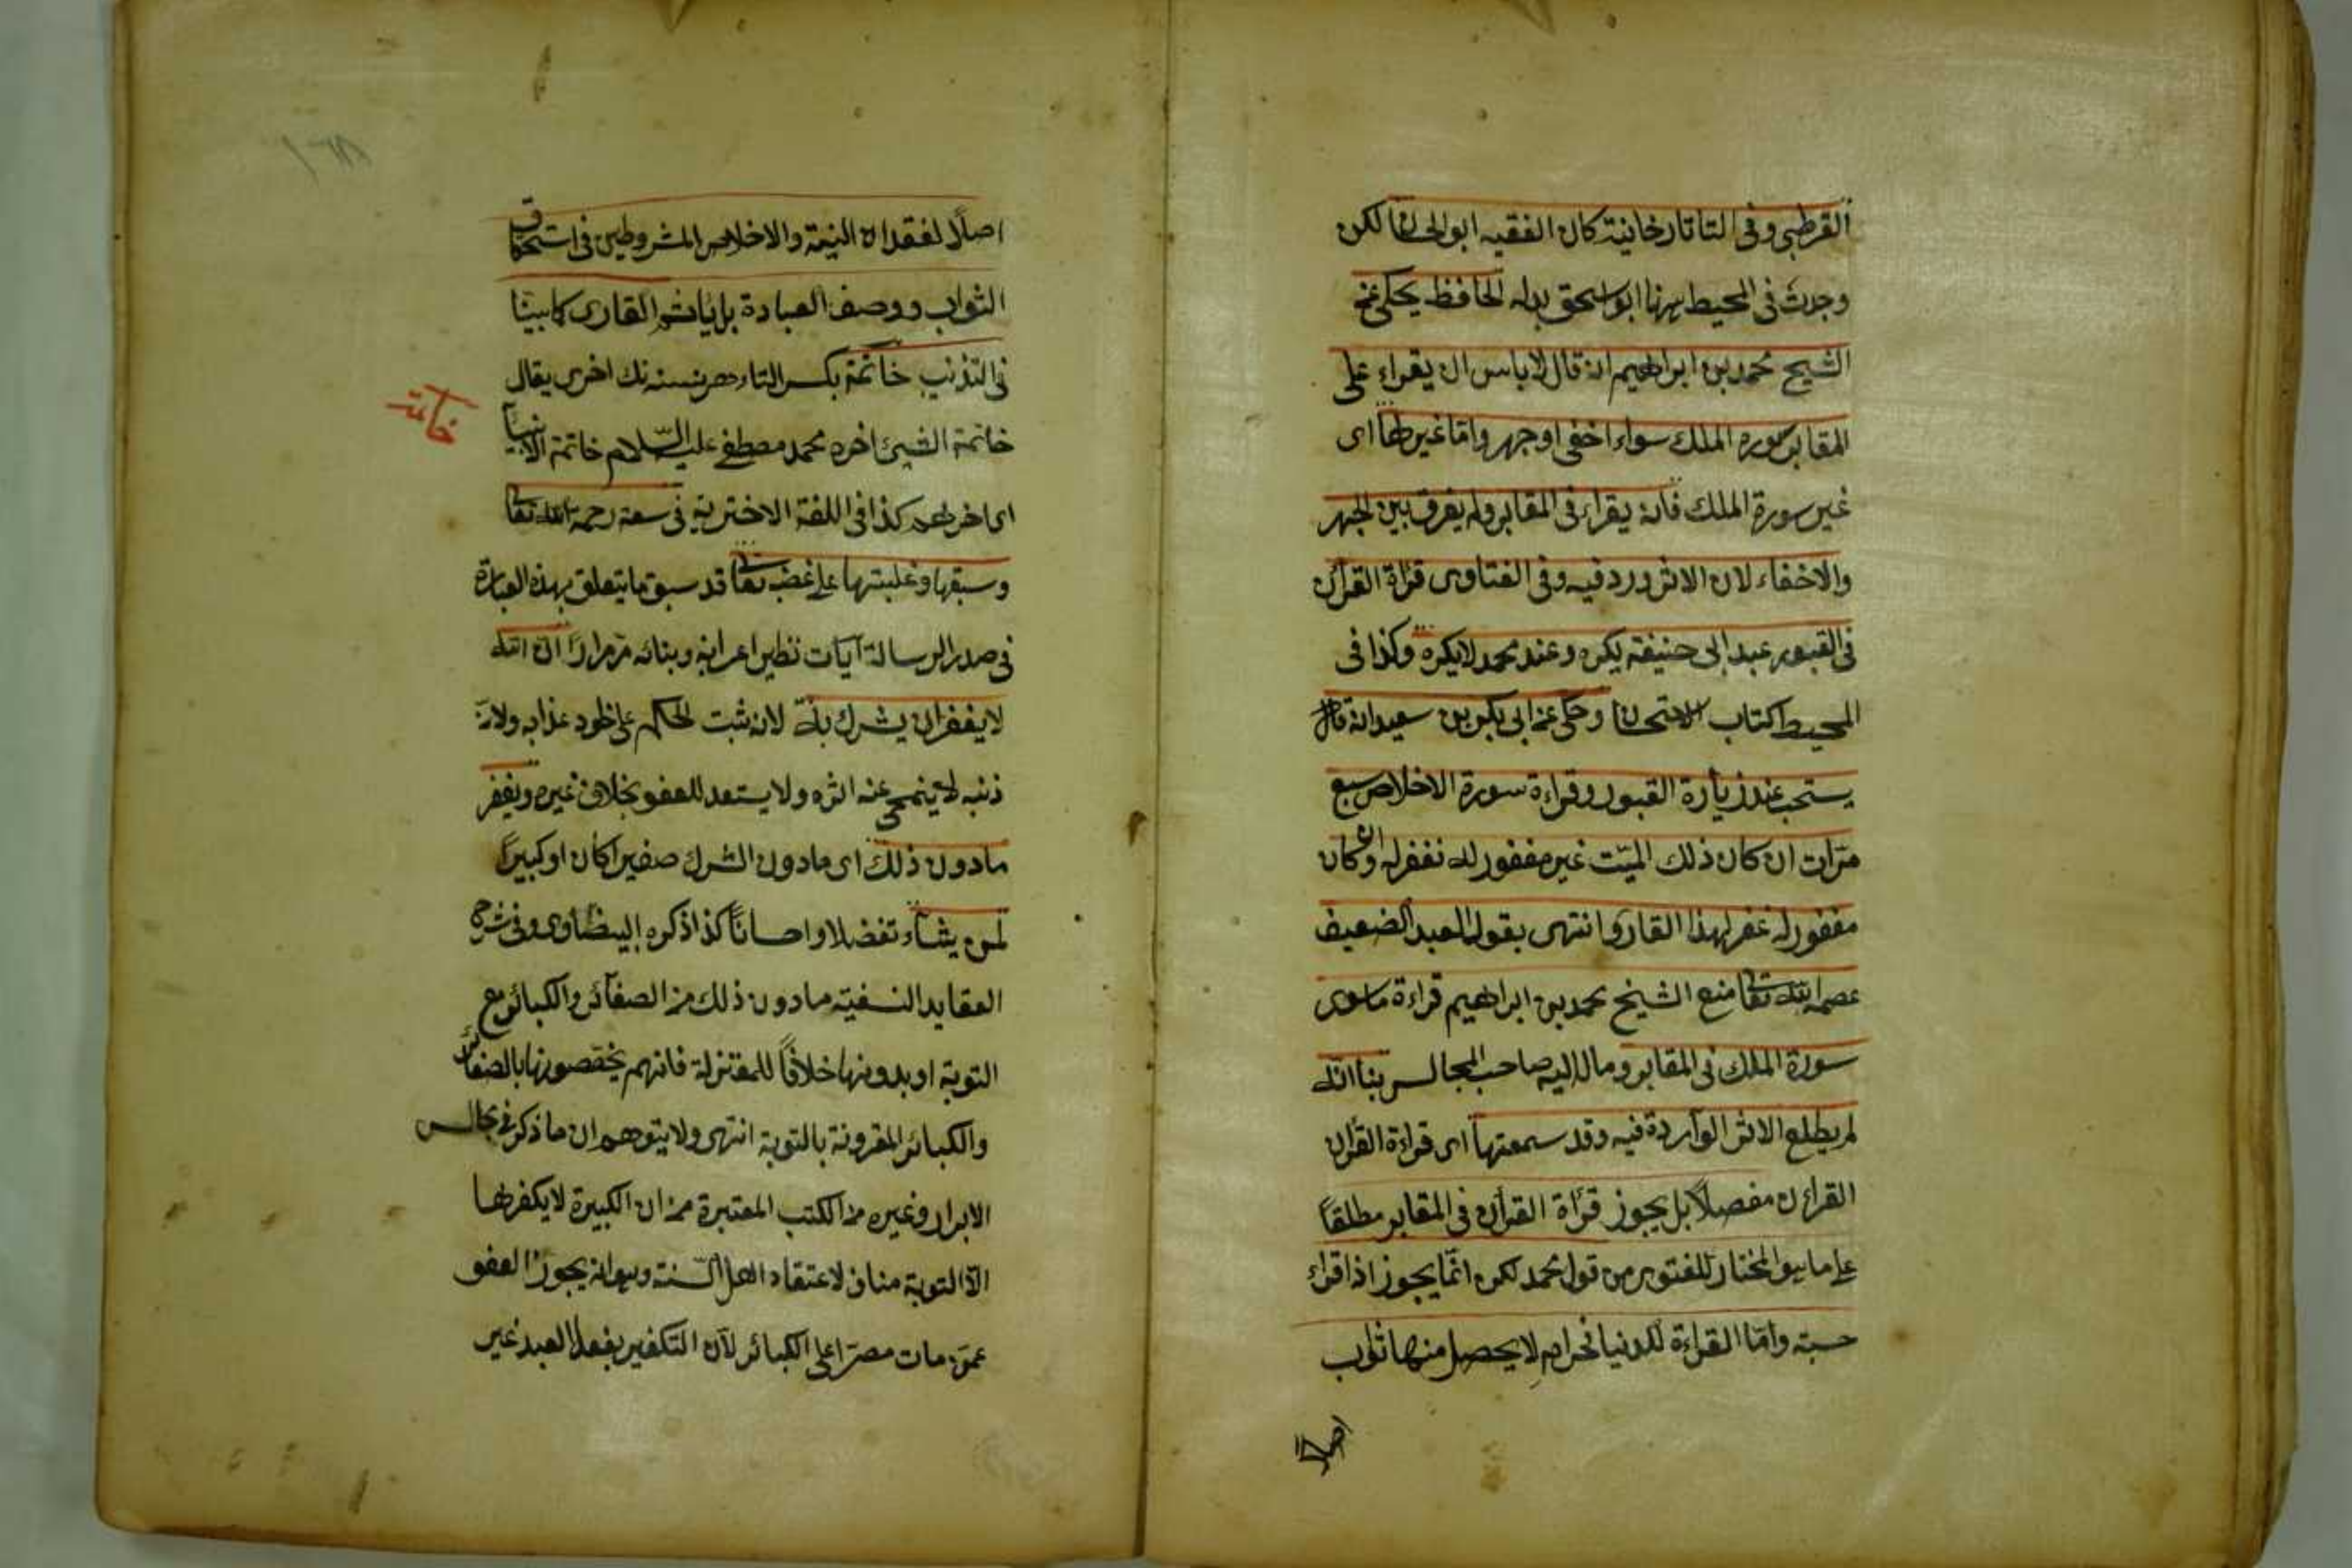 القرطبي وفى التاتارخانية كان الفقيه ابو اسحق لكن
وجدت فى المحيط ابو اسحق الحافظ يحكى عن
الشيخ محمد بن ابراهيم انه قال لا باس ان يقراء على
المقابر سورة الملك سواء اخفى او جهر واما غيرها اى
غير سورة الملك فانه يقراء فى المقابر ولم يفرق بين الجهر
والاخفاء لان الاثر ورد فيه وفى الفتاوى قراة القرآن
فى القبور عند ابى حنيفة يكره وعند محمد لا يكره وكذا فى
المحيط كتاب الاستحسان وحكى عن ابى بكر بن سعيد انه قال
يستحب عند زيارة القبور وقراءة سورة الاخلاص سبع
مرات ان كان ذلك الميت غير مغفور له نغفر له وان كان
مغفور له غفر لهذا القارى انتهى يقول العبد الضعيف
عصمه الله تعالى منع الشيخ محمد بن ابراهيم قراءة ما سوى
سورة الملك فى المقابر ومال اليه صاحب المجالس بناء انه
لم يطلع الاثر الواردة فيه وقد سمعتها اى قراءة القرآن
القرآن مفصلا بل يجوز قراة القرآن فى المقابر مطلقا
على ما هو المختار للفتوى من قول محمد لكن انما يجوز اذا قراء
حسبة واما القراءة للدنيا فحرام لا يحصل منها ثواب
اصلا
اصلا لفقدان النية والاخلاص المشروطين فى استحقاق
الثواب ووصف العبادة بل ياثم القارى كما بينا
فى التذنيب خاتمة بكسر التاء هر نسنه نك اخرى يقال
خاتمة الشيئ اخره محمد مصطفى عليه السلام خاتمة الانبيا
اى اخرهم كذا فى اللغة الاخترية فى سعة رحمة الله تعالى
وسبقها وغلبتها على غضبه تعالى قد سبق ما يتعلق بهذه العبارة
فى صدر الرسالة آيات نظير اعرابه وبنائه مر مرارا ان الله
لا يغفر ان يشرك به لانه ثبت الحكم على خلود عذابه ولان
ذنبه لا ينمحى عنه اثره ولا يستعد للعفو بخلاف غيره ويغفر
ما دون ذلك اى ما دون الشرك صغيرا كان او كبيرا
لمن يشاء تفضلا واحسانا كذا ذكره البيضاوى وفى شرح
العقايد النسفية ما دون ذلك من الصغائر والكبائر مع
التوبة او بدونها خلافا للمعتزلة فانهم يخصصونها بالصغائر
والكبائر المقرونة بالتوبة انتهى ولا يتوهم ان ما ذكر فى مجالس
الابرار وغيره من الكتب المعتبرة من ان الكبيرة لا يكفرها
الا التوبة مناف لاعتقاد اهل السنة وهو انه يجوز العفو
عمن مات مصرا على الكبائر لان التكفير بفعل العبد غير
خاتمة